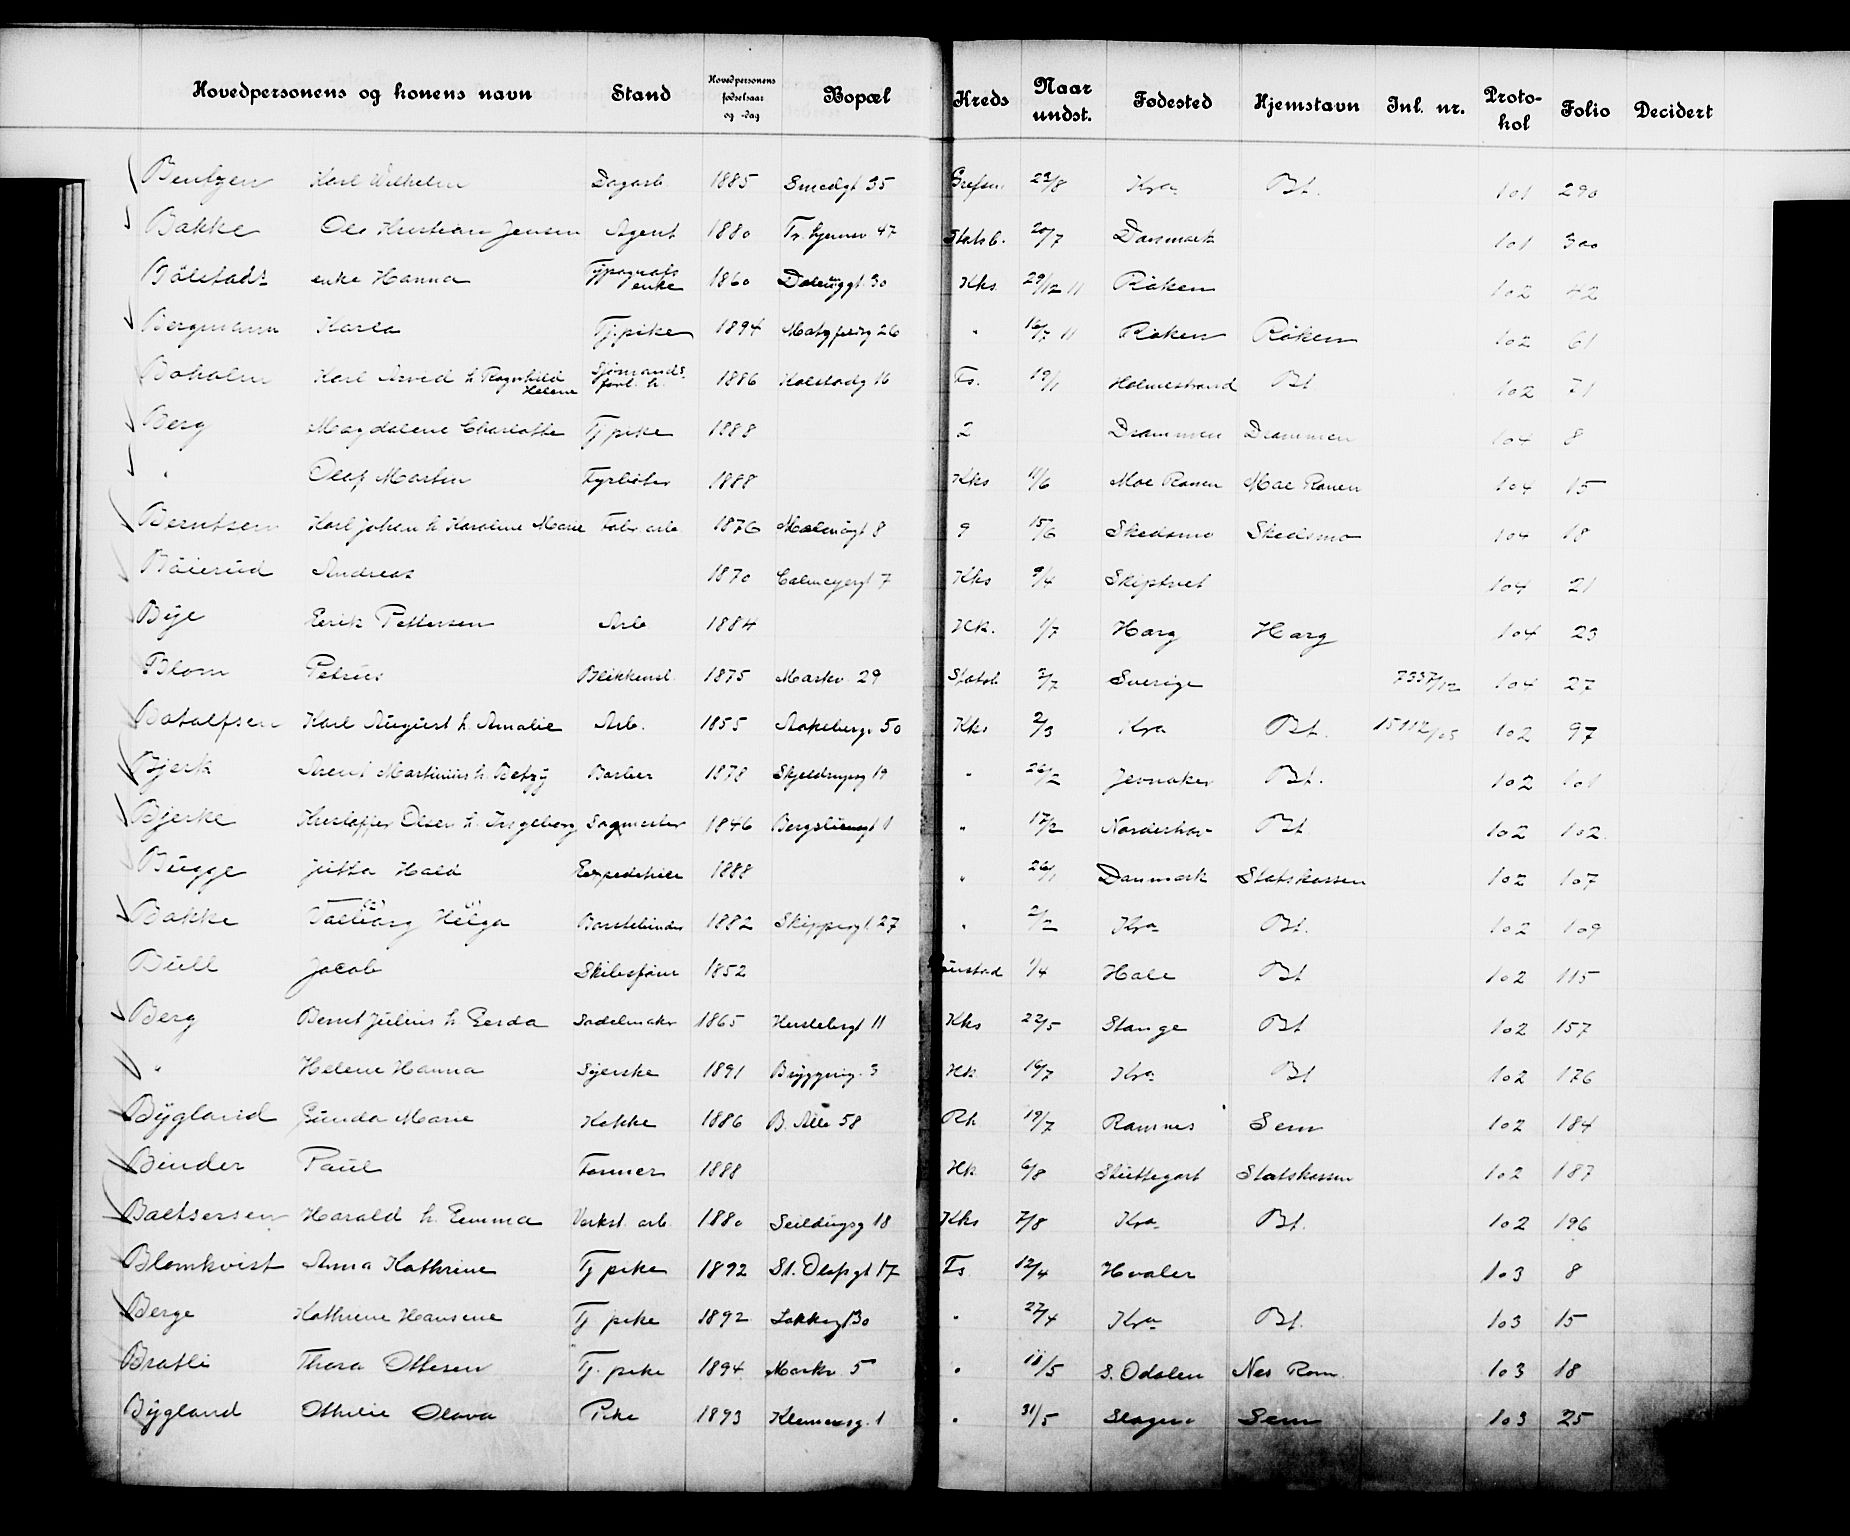 Hovedpersonens og konens navn Stand Hovedpersonens fødselsaar og -dag Bopæl Kreds Naar undst. Fødested Hjemstavn Inl. nr. Protokol Folio Decidert
Bentzen Karl Wilhelm Dagarb 1885 Smedgt 35 Grefsen 22/8 Kra Bt. 101 290
Bakke Ole Kristian Jensen Agent 1880 Tr. hjemsv 47 Statsb. 20/7 Danmark 101 300
Bölstads enke Hanna Typografs enke 1860 30 Kks 29/12 11 Röken 102 42
Bergmann Karla Tj.pike 1894 26 " 16/7 11 Röken Röken 102 61
Boholm Karl Arvid h. Ragnhild Helene Sjömands forl. h. 1886 Kolstadg 16 Fs. 19/1 Holmestrand Bt 102 71
Berg Magdalene Charlotte Tj pike 1888 2 Drammen Drammen 104 8
" Olaf Martin Fyrböter 1888 Kks 11/6 Moe Ranen Moe Ranen 104 15
Berntsen Karl Johan h. Karoline Marie Fabr arb 1876 8 9 15/6 Skedsmo Skedsmo 104 18
Böierud Andreas 1870 Calmeyergt 7 Kks 9/4 Skiptvet 104 21
Bye Eerik Pettersen Arb 1884 Kk. 1/7 Harg Harg 104 23
Blom Petrus Blikkensl. 1875 Markv 29 Statsb 2/7 Sverige 7337/12 104 27
Botolfsen Karl August h. Amalie Arb. 1855 Aakebergv 50 Kks 2/3 Kra Bt. 15112/05 102 97
Bjerk Arent Martinius h. Betzy Barber 1878 19 " 26/2 Jevnaker Bt. 102 101
Bjerke Kristoffer Olsen h. Ingeborg Sagmester 1846 Bergsliensgt 1 " 17/2 Norderhov Bt. 102 102
Bugge Jutta Hald Expeditrice 1888 " 26/1 Danmark Statskassen 102 107
Bakke Valborg Helga Børstebinder 1882 Skippergt. 27 " 2/2 Kra Bt. 102 109
Bull Jacob Skibsförer 1852 1/4 Hole Bt 102 115
Berg Bernt Julius h. Gerda Sadelmaker 1865 Herslebsgt 11 Kks 22/5 Stange Bt 102 157
" Helene Hanna Syerske 1891 Bryggvng. 3 Kk 16/7 Kra Bt 102 176
Bygland Gunda Marie Kokke 1886 B. Alle 58 Rh 19/7 Ramnes Sem 102 184
Binder Paul Former 1888 Kk 6/8 Stuttegart Statskassen 102 187
Baltsersen Harald h. Emma Verkst. arb. 1880 Seildugsg 18 Kks 7/8 Kra Bt. 102 196
Blomkvist Anna Kathrine Tj pike 1892 St. Olafsgt 17 Fs. 12/4 Hvaler 103 8
Berge Kathrine Hansine Tj pike 1892 Løkkegt 30 " 27/4 Kra Bt. 103 15
Bratli Thora Ottesen Tj. pike 1894 Markv. 5 " 11/5 S. Odalen Nes Rom. 103 18
Bygland Othilie Olava Pike 1893 1 " 31/5 Slagen Sem 103 25